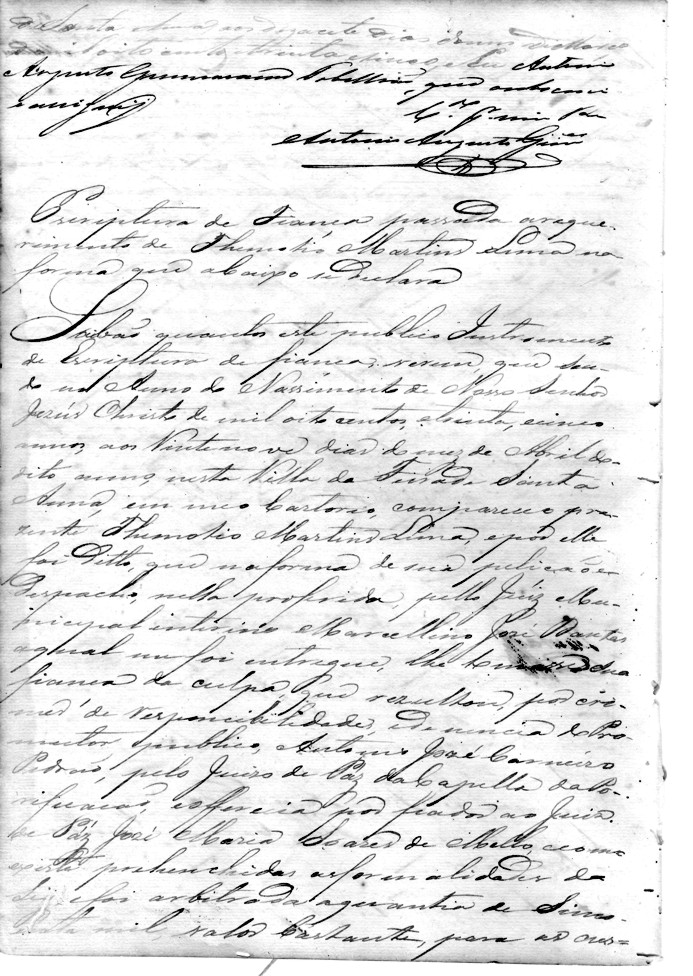 de Santa Anna aos dezacete dias do mes de Março
de mil oito centos trinta e cinco Eu Antonio
Augusto Guimaraens Tabelliaõ, que osobscrevi
e assignei
Antonio Augusto Guim.es
Escriptura de Fiança passada a reque-
rimento de Themotio Martins Lima na
forma que abaixo se declara
Saibaõ quantos este publico Instromento
de Escriptura de fiança, virem, que sen-
do no Anno do Nassimento de Nosso Senhor
Jezus Christo de mil oito centos, etrinta, e cinco
annos, aos Vinte nove dias do mez de Abril do
dito anno, nesta Villa da Feira de Santa
Anna, em meo Cartorio, compareceo pre-
zente Themotio Martins Lima, e por elle
foi Ditto, que na forma de sua petiçaõ e
Despacho, nella proferida, pello Juiz Mu-
nicipal interino Marcellino José Dantas
aqual me foi entregue, lhe tomasse sua
fiança da culpa, que rezultou, por cri-
me de responcibilidade, e denuncia do Pro-
mutor publico, Antonio José Carneiro
Pedraõ, pelo Juizo de Paz da Capella da Po-
rificaçaõ, e offerecia por fiador ao Juiz
de Páz José Maria Soares de Mello, e como
prehenchidas as formalidades da
Lei, e foi arbitrada a quantia de
mil, valor bastante, para as cus=